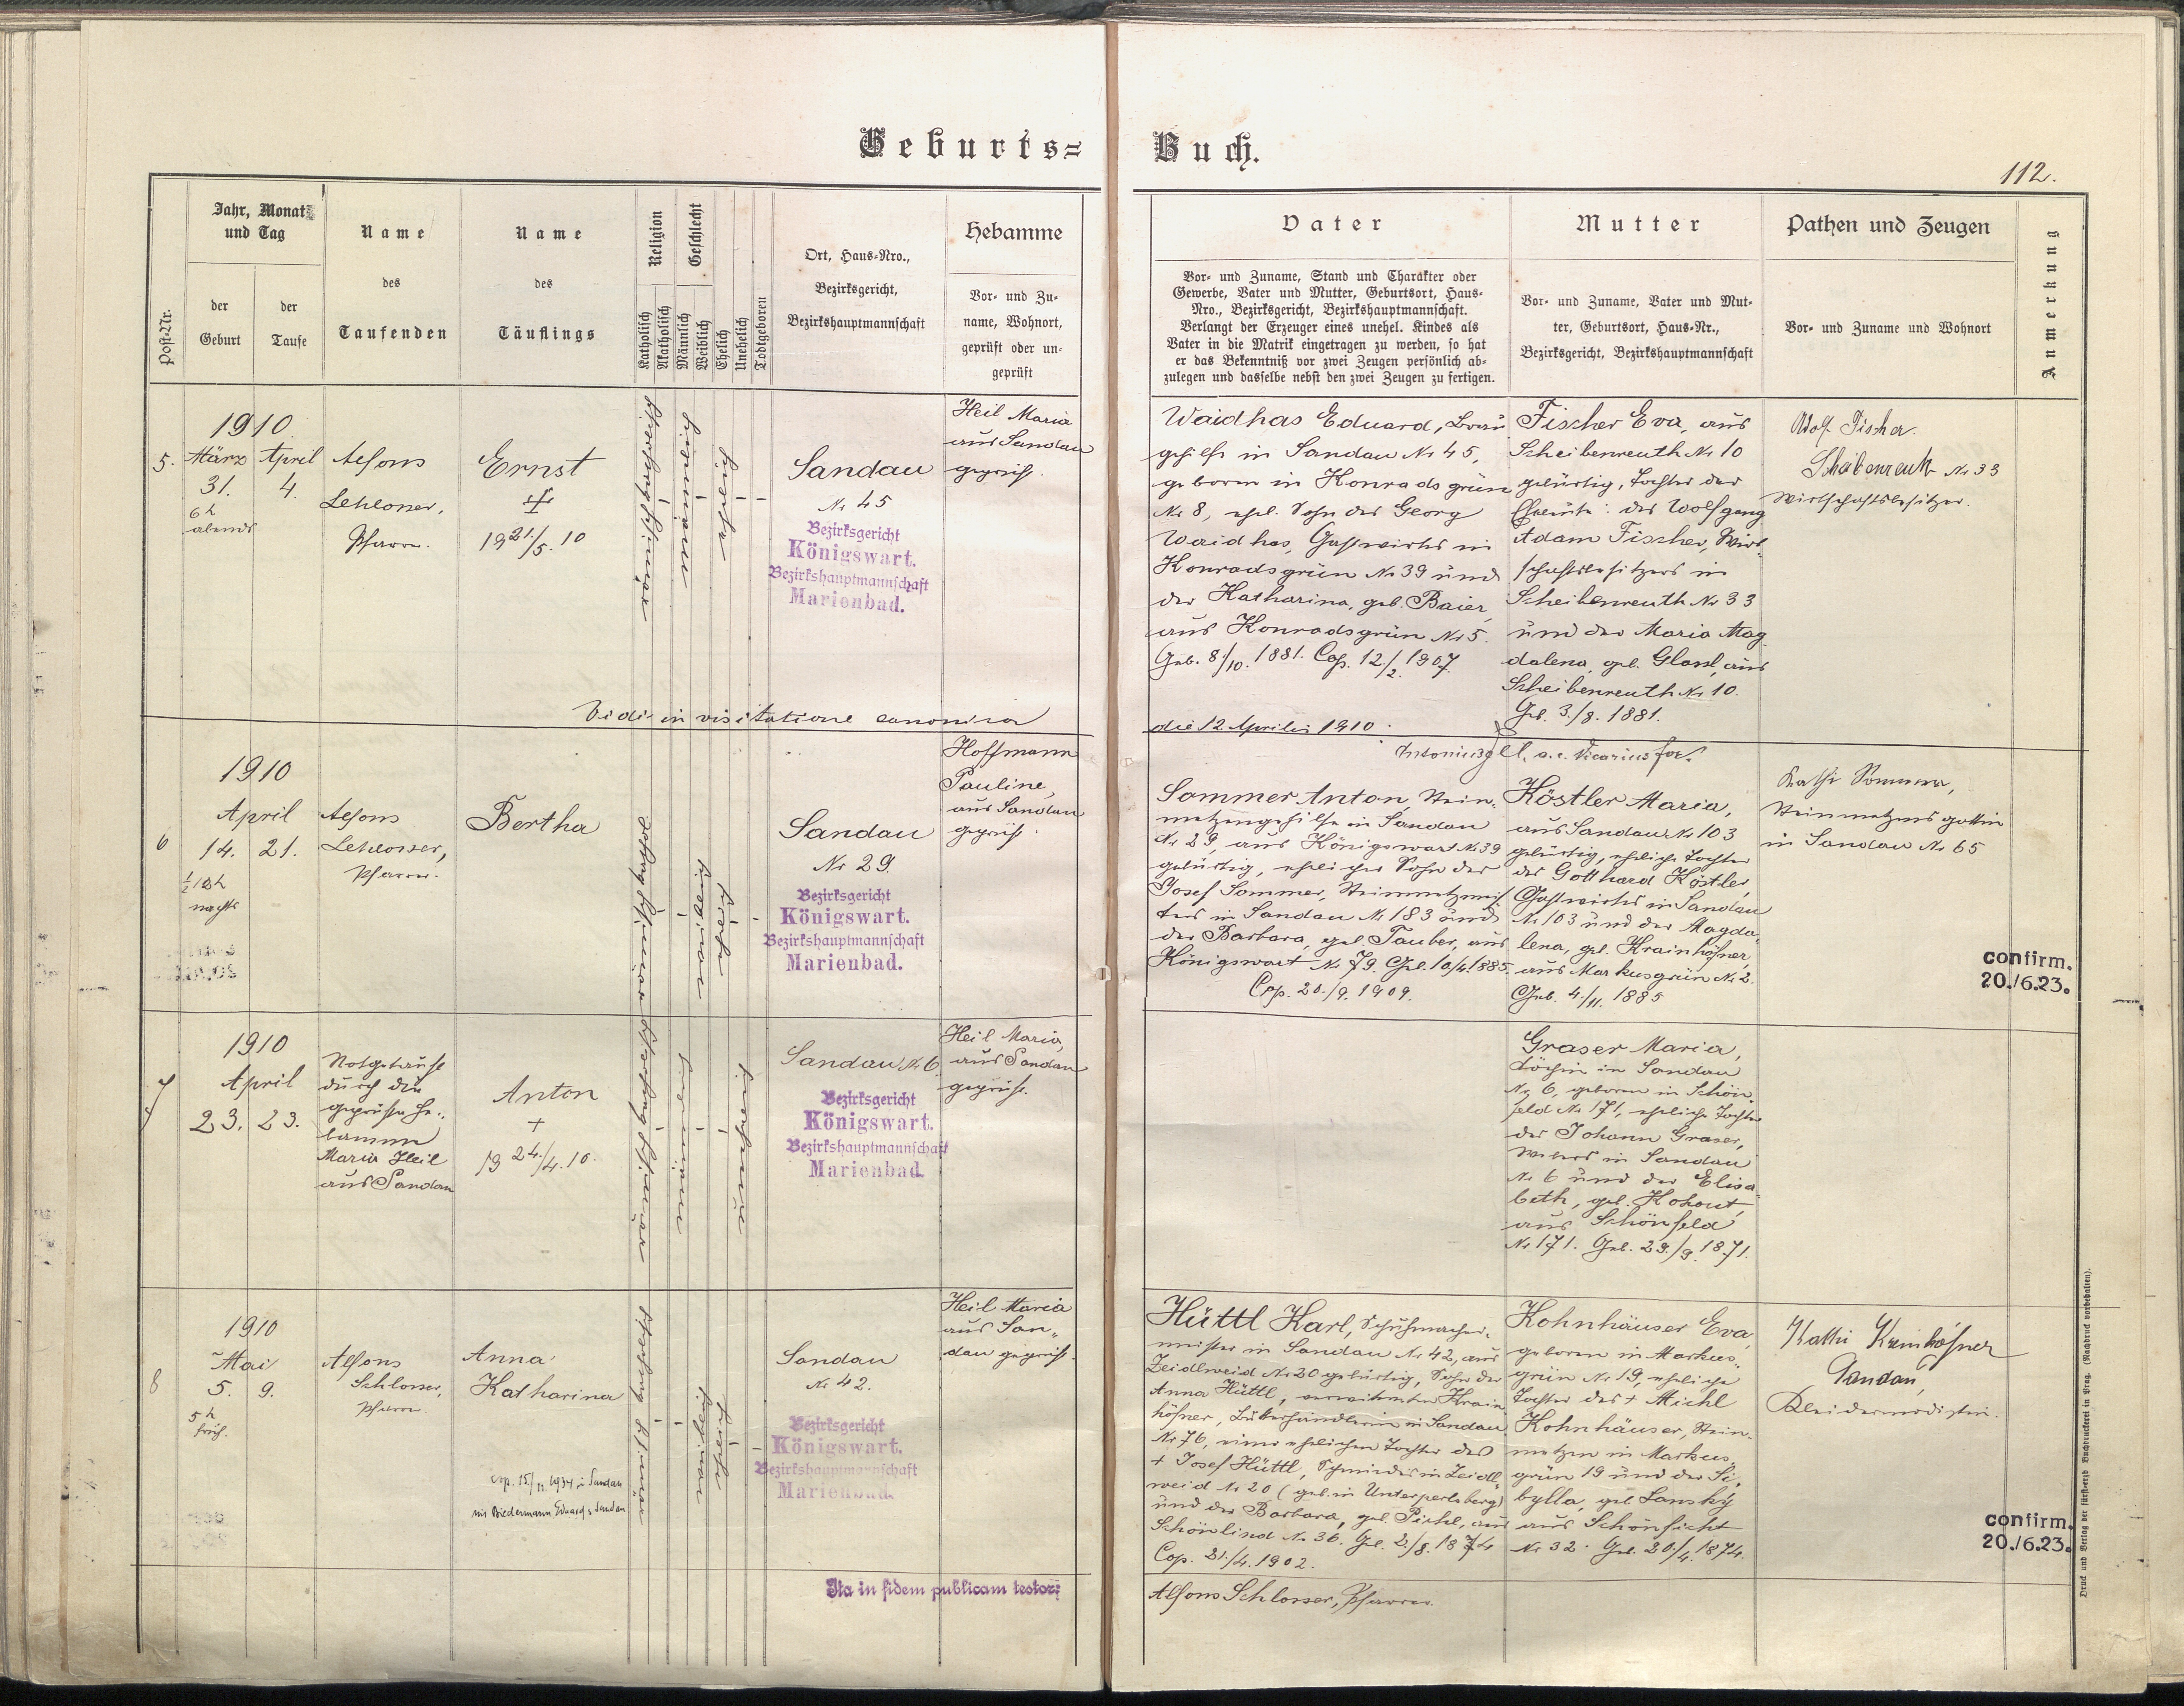 Geburts=
Buch.
112.
Post-Nr.
Jahr, Monat
und Tag
der
Geburt
der
Taufe
Name
des
Taufenden
Name
des
Täuflings
Religion
Katholisch
Akatholisch
Geschlecht
Männlich
Weiblich
Ehelich
Unehelich
Todtgeboren
Ort, Haus-Nro.,
Bezirksgericht,
Bezirkshauptmannschaft
Hebamme
Vor- und Zu-
name, Wohnort,
geprüft oder un-
geprüft
Vater
Vor- und Zuname, Stand und Charakter oder
Gewerbe, Vater und Mutter, Geburtsort, Haus-
Nro., Bezirksgericht, Bezirkshauptmannschaft.
Verlangt der Erzeuger eines unehel. Kindes als
Vater in die Matrik eingetragen zu werden, so hat
er das Bekenntniß vor zwei Zeugen persönlich ab-
zulegen und dasselbe nebst den zwei Zeugen zu fertigen.
Mutter
Vor- und Zuname, Vater und Mut-
ter, Geburtsort, Haus-Nr.,
Bezirksgericht, Bezirkshauptmannschaft
Pathen und Zeugen
Vor- und Zuname und Wohnort
Anmerkung
5.
1910
März April
31. 4.
6h
abends
Alfons
Schlosser,
Pfarrer.
Ernst
+
19 21./5. 10
Sandau
Nr 45
Bezirksgericht
Königswart.
Bezirkshauptmannschaft
Marienbad.
Heil Maria
aus Sandau
geprüft.
Waidhas Eduard, Bräu
gehilfe in Sandau Nr 45,
geboren in Konradsgrün
Nr 8, ehel. Sohn des Georg
Waidhas, Gastwirths in
Konradsgrün Nr 39 und
der Katharina, geb. Baier,
aus Konradsgrün Nr 5.
Geb. 8./10. 1881. Cop. 12./2. 1907.
Fischer Eva, aus
Scheibenreuth Nr 10
gebürtig, Tochter der
Eheleute: des Wolfgang
Adam Fischer, Wirt-
schaftsbesitzers in
Scheibenreuth Nr 33
und der Maria Mag
dalena, geb. Glassl, aus
Scheibenreuth Nr 10.
Geb. 3./8. 1881.
Adolf Fischer.
Scheibenreuth Nr 33
Wirtschaftsbesitzer.
Vidi in visitatione canonica
die 12 Aprilis 1910.
a. e. Vicarius for.
6
1910
April
14. 21.
1/2 12h
nachts
Alfons
Schlosser,
Pfarrer.
Bertha
Sandau
Nr 29.
Bezirksgericht
Königswart.
Bezirkshauptmannschaft
Marienbad.
Hoffmann
Pauline,
aus Sandau
geprüft.
Sommer Anton, Stein-
metzgehilfe in Sandau
Nr 29, aus Königswart Nr 39
gebürtig, ehelicher Sohn des
Josef Sommer, Steinmetzmeis
ters in Sandau Nr 183 und
der Barbara, geb. Tauber, aus
Königswart Nr 79. Geb. 10/4. 1885.
Cop. 20./9. 1909.
Köstler Maria,
aus Sandau Nr 103
gebürtig, eheliche Tochter
des Gotthard Köstler,
Gastwirths in Sandau
Nr 103 und der Magda-
lena, geb. Krainhöfner,
aus Markusgrün Nr 2.
Geb. 4./11. 1885
Kathi Sommer,
Steinmetzensgattin
in Sandau Nr 65
confirm.
20./6.23.
7
1910
April
23. 23.
Notgetauft
durch die
geprüfte He-
bamme
Maria Heil
aus Sandau
Anton
+
19 24./4. 10.
Sandau Nr 6.
Bezirksgericht
Königswart.
Bezirkshauptmannschaft
Marienbad.
Heil Maria,
aus Sandau
geprüft.
Graser Maria,
Köchin in Sandau
Nr 6, geboren in Schön-
feld Nr 171, eheliche Tochter
des Johann Graser,
Webers in Sandau
Nr 6 und der Elisa
beth, geb. Kohout,
aus Schönfeld
Nr 171. Geb. 29./9. 1871.
8
1910
Mai
5. 9.
5h
früh.
Alfons
Schlosser,
Pfarrer.
Anna
Katharina
cop. 15/11. 1934 in Sandau
mit Biedermann Eduard, Sandau
Sandau
Nr 42.
Bezirksgericht
Königswart.
Bezirkshauptmannschaft
Marienbad.
Heil Maria
aus San-
dau geprüft.
Hüttl Karl, Schuhmacher-
meister in Sandau Nr 42, aus
Zeidlweid Nr 20 gebürtig, Sohn der
Anna Hüttl, verwitweten Krain
höfner, Butterhändlerin in Sandau
Nr 76, einer ehelichen Tochter des
+ Josef Hüttl, Schmiedes in Zeidl-
weid Nr 20 (geb. in Unterperlsberg)
und der Barbara, geb. Pichl, aus
Schönlind Nr 36. Geb. 2./8. 1874
Cop. 21./4. 1902.
Kohnhäuser Eva,
geboren in Markus-
grün Nr 19, eheliche
Tochter des + Michl
Kohnhäuser, Stein-
metzen in Markus-
grün 19 und der Si-
bylla, geb. Lanský
aus Schönficht
Nr 32. Geb. 20./4. 1874.
Kathi Krainhöfner
Sandau,
Kleidermodistin.
confirm.
20./6.23.
Ita in fidem publicam testor:
Alfons Schlosser, Pfarrer.
Druck und Verlag der fürsterzb. Buchdruckerei in Prag. (Nachdruck vorbehalten).